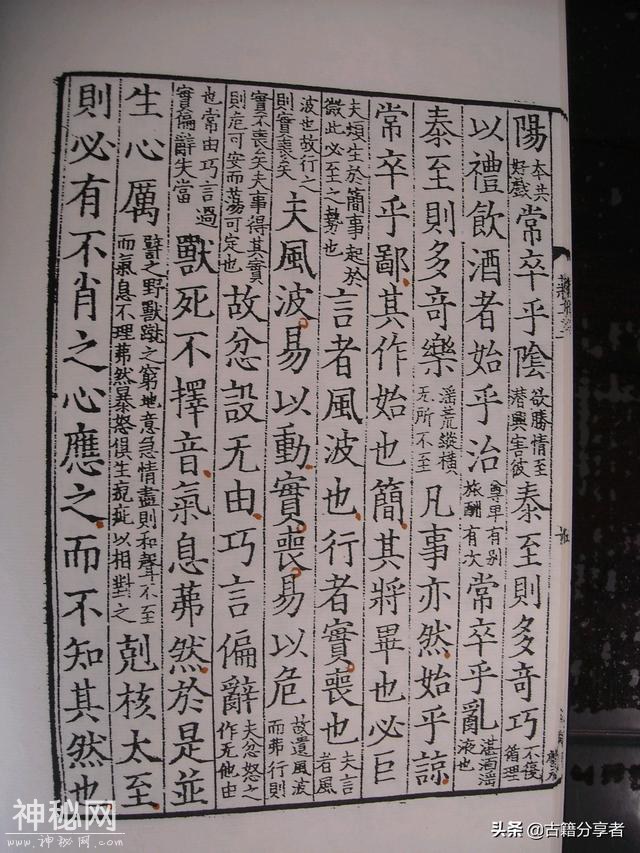 陽本共好戲常卒乎陰欲勝情至潛興害彼泰至則多奇巧不復循理
以禮飲酒者始乎治尊卑有別旅酬有次常卒乎亂湛湎淫液也
泰至則多奇樂淫荒縱橫无所不至凡事亦然始乎諒
常卒乎鄙其作始也簡其將畢也必巨
夫煩生於簡事起於微此必至之勢也言者風波也行者實喪也夫言者風
波也故行之則實喪矣夫風波易以動實喪易以危故遺風波而弗行則
實不喪矣夫事得其實則危可安而蕩可定也故忿設无由巧言偏辭夫忿怒之作无他由
也常由巧言過實偏辭失當獸死不擇音氣息茀然於是並
生心厲譬之野獸蹴之窮地意急情盡則和聲不至而氣息不理茀然暴怒俱生疵以相對之剋核太至
則必有不肖之心應之而不知其然也
神秘网
www.神秘网.com
头条 @古籍分享者